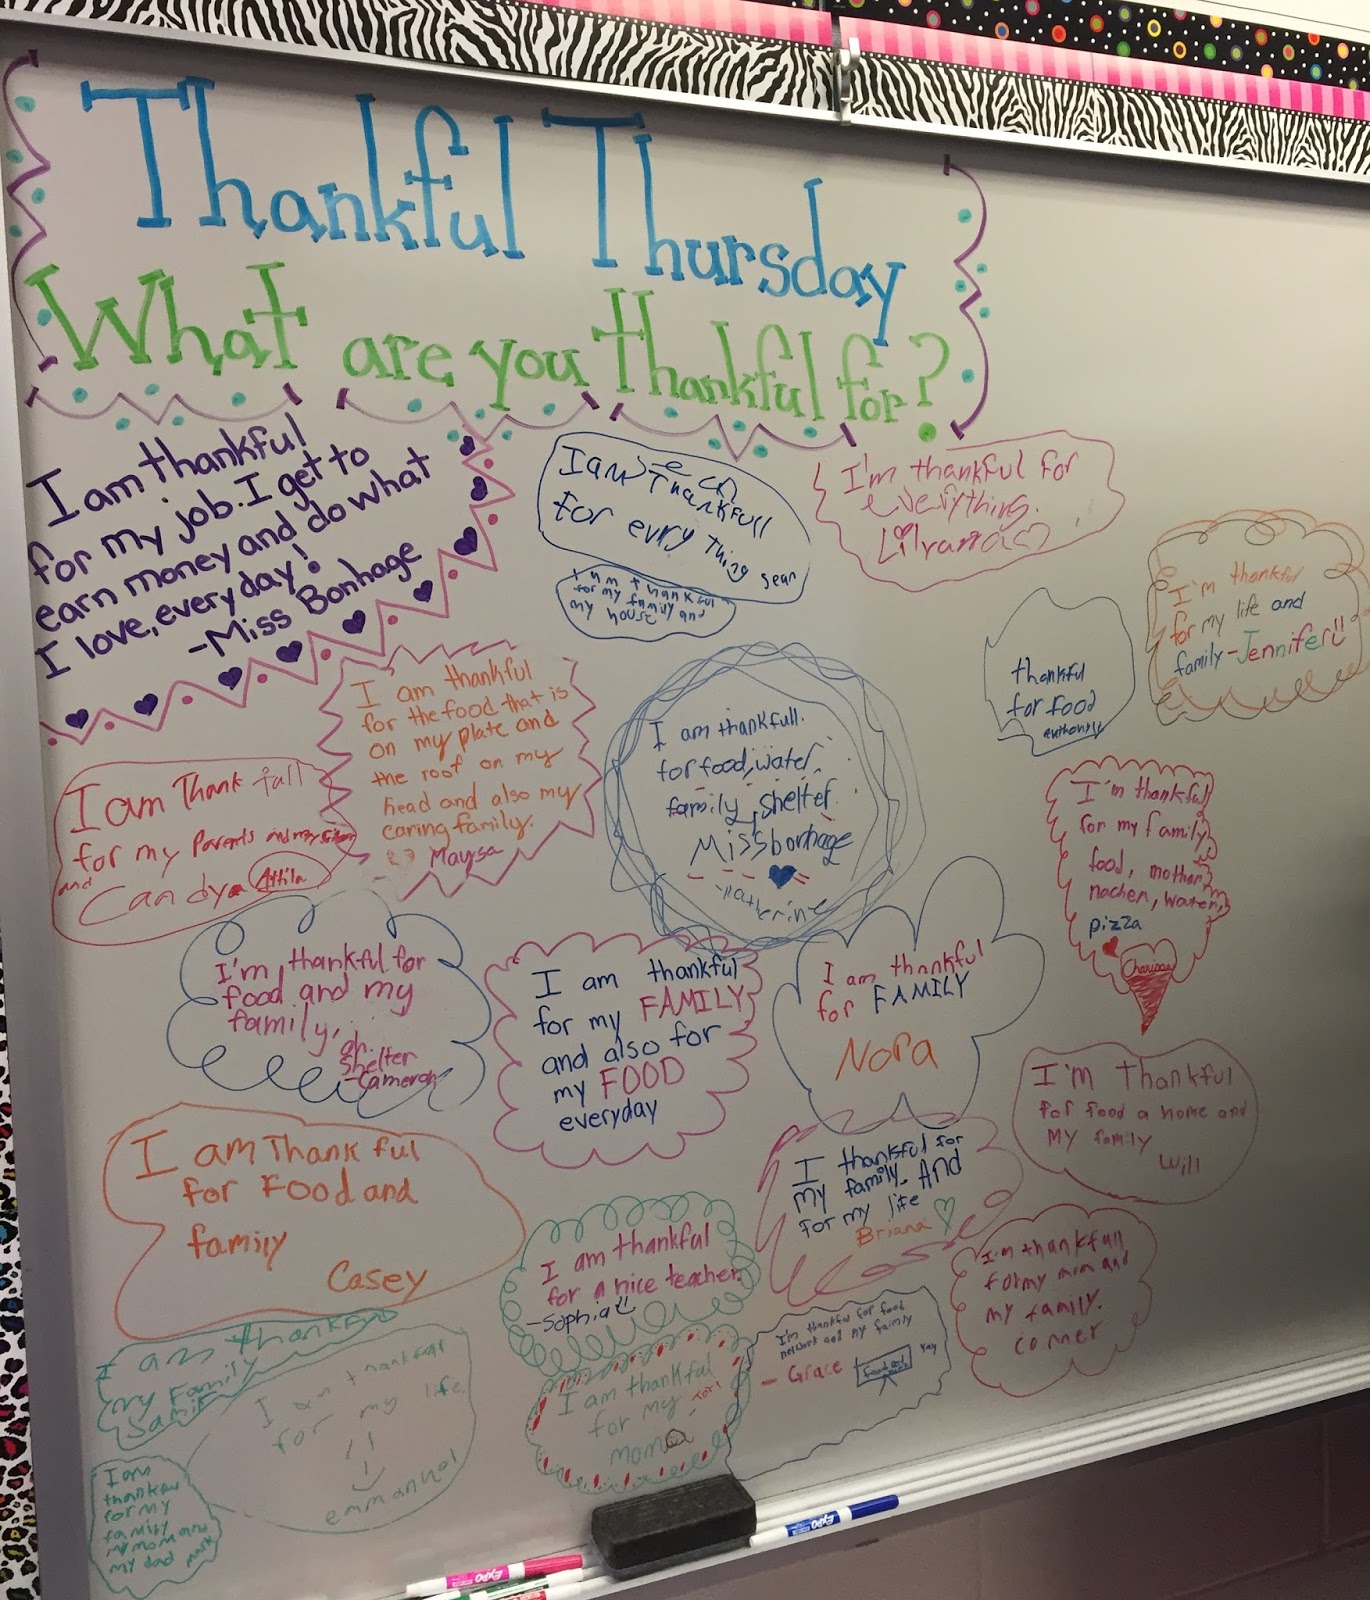 Thankful Thursday
What are you thankful for?
I am thankful
for my job. I get to
earn money and do what
I love, everyday!
-Miss Bonhage
I am
Thankfull
for evry thing sean
I am thankful
for my family and
my house
I'm thankful for
everything.
I'm thankful
for my life and
family-Jennifer
thankful
for food
anthony
I am thankful
for the food that is
on my plate and
the roof on my
head and also my
caring family.
Maysa
I am thankfull.
for food, water,
family, shelter.
Miss bonhage
-Katherine
I am Thank full
for my Parents and my
and
Candy Attila
I'm thankful
for my family,
food, mother
nacher, water,
pizza
Charissa
I'm thankful for
food and my
family,
oh
shelter
-Cameron
I am thankful
for my FAMILY
and also for
my FOOD
everyday
I am thankful
for FAMILY
Nora
I'm Thankful
for food a home and
My family
Will
I am Thank ful
for Food and
family
Casey
I am thankful
for a nice teacher.
-Sophia
I thankful for
my family. And
for my life
Briana
I'm thankfull
for my mom and
my family.
conner
I am thankful
my Family
Samir
I am thankfull
for my life
emmanuel
I am thankful
for my
mom
I'm thankful for food
network and my family
- Grace Ray
I am
thankful
for my
family
my mom and
my dad mark
EXPO
EXPO